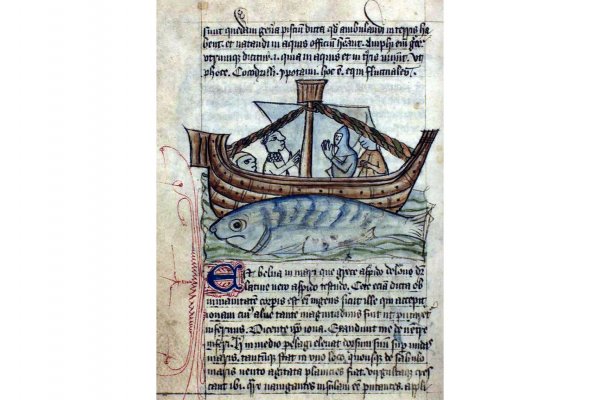 sunt quedam gen̄a pisciū dicta qd̄ ambulandi in terris ha
bent. et natandi in aquis officiū Amphi
dicitur .i. qua in aquis et in t̄ris vt
phoce. Cocodrilli. ypotami. hoc ē. equi fluctuales.
Est belua in mari que grece aspido delone dr̄
latine vero aspido testudo. Cete eciā dicta ob
immanitatem corp̄is est em̄ ingens sicut ille qui accepit
ionam cui᷒ alu᷒ tante magnitudinis fuit ut putaret
infernus. Dicente ip̄o iona. Exaudiuit me de uentre
inferi. in medio pelagi eleuat dorsum suū sup̄ undas
maris. stat in uno loco. quousque de sabulo
maris uento agitata planicies fiat. cres
cant ibi. nauigantes insulam eē putantes. appli